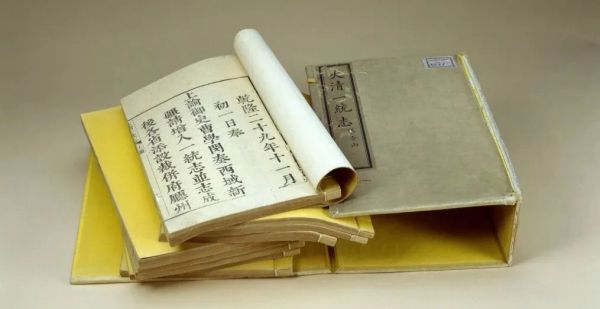 乾隆二十九年十一月
初一日奉
上諭御史曹學閔奏西域新
疆請增入一統志並志成
後各省添設裁併府廳州
大清一統志